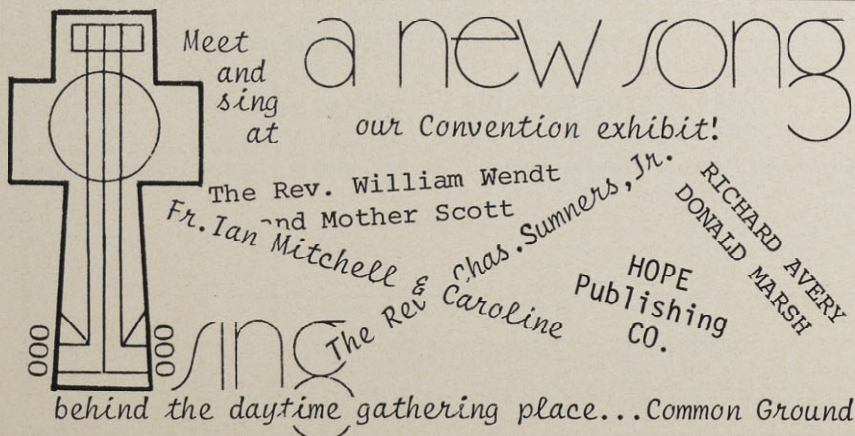 Meet
and
sing
at
a new song
our Convention exhibit!
The Rev. William Wendt
and Mother Scott
Fr. Ian Mitchell & Caroline
The Rev Chas. Sumners, Jr.
RICHARD AVERY
DONALD MARSH
HOPE
Publishing
CO.
sing
behind the daytime gathering place...Common Ground